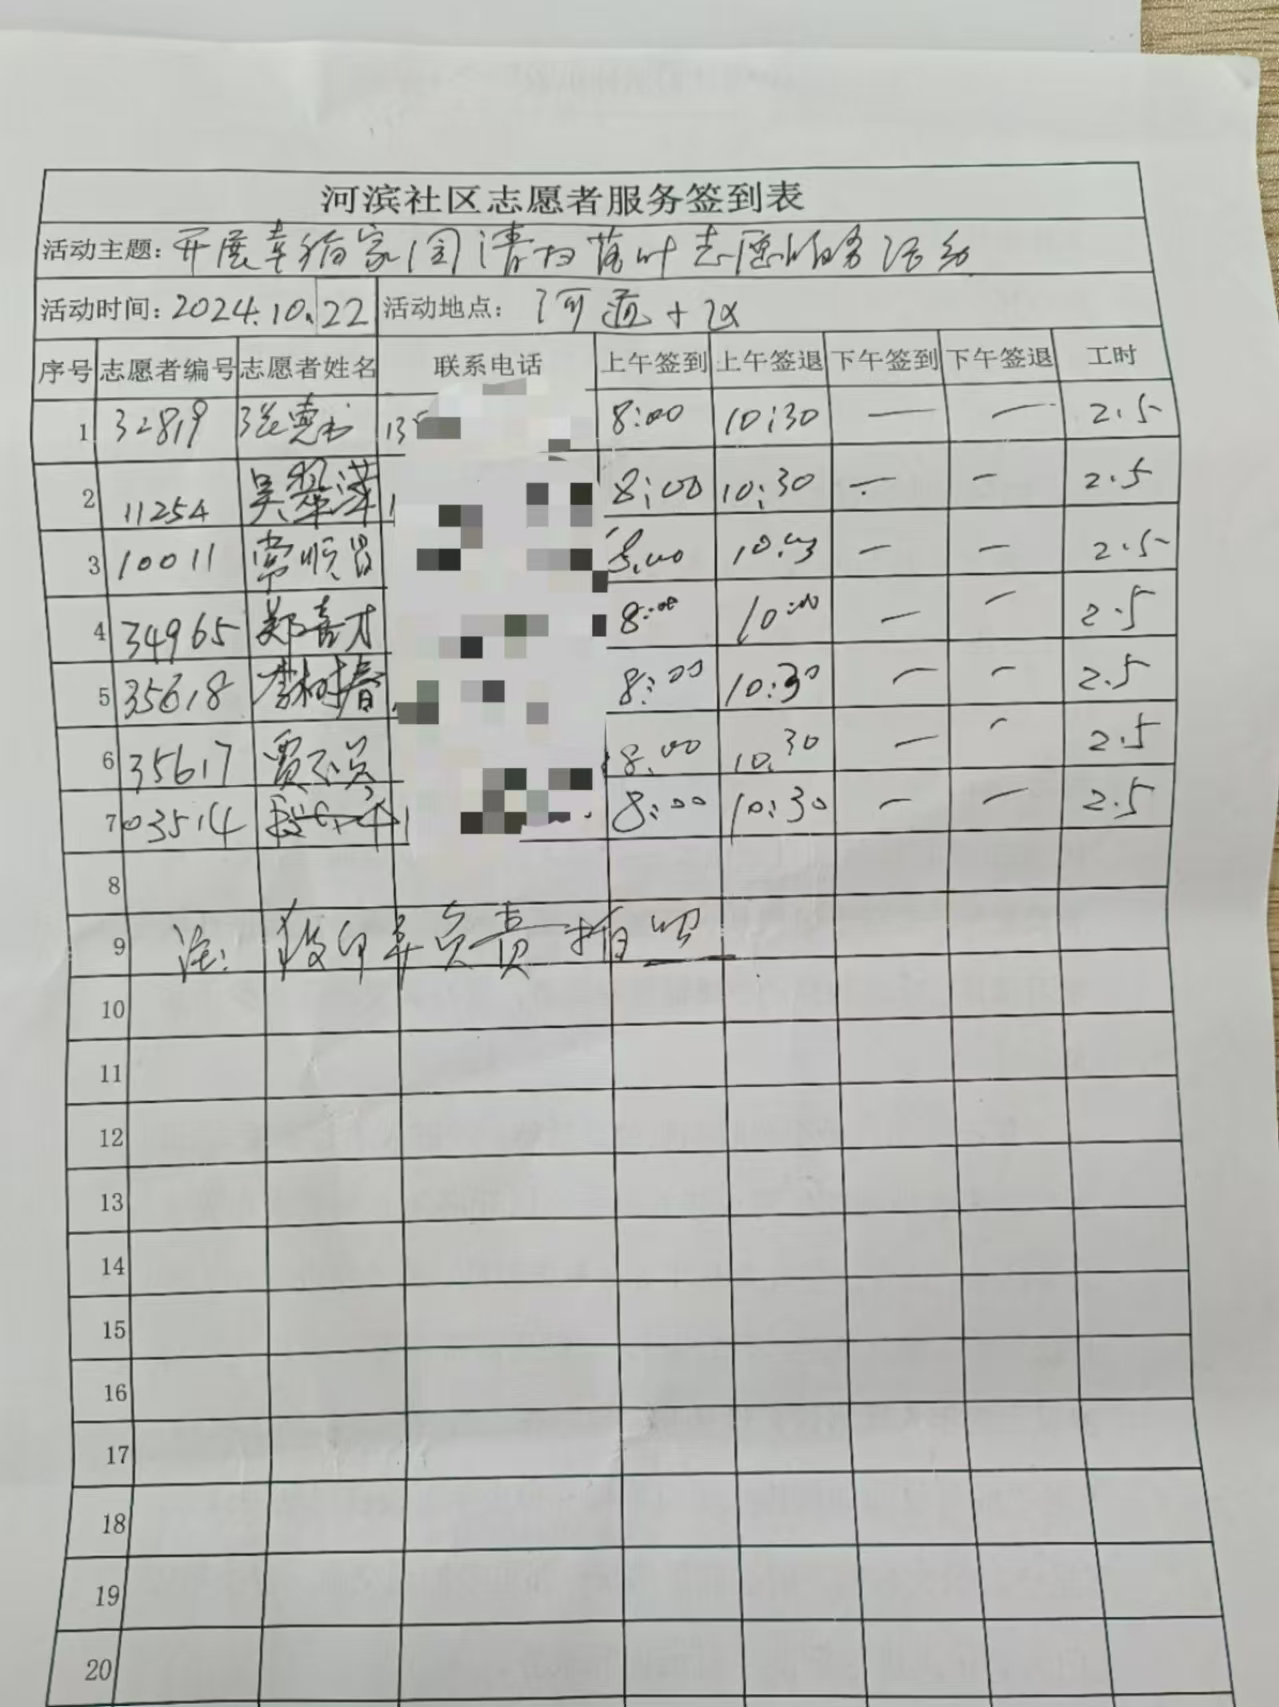 河滨社区志愿者服务签到表
活动主题: 开展幸福家园清扫落叶志愿服务活动
活动时间: 2024.10.22 活动地点: 河道
序号 志愿者编号 志愿者姓名 联系电话 上午签到 上午签退 下午签到 下午签退 工时
1 32819 张惠书 135 8:00 10:30 — — 2.5
2 11254 吴翠萍 1 8:00 10:30 — — 2.5
3 10011 常顺昌 8:00 — — 2.5
4 34965 郑喜才 8:00 10:00 — — 2.5
5 35618 李树春 8:00 10:30 — — 2.5
6 35617 贾 8:00 10:30 — — 2.5
7 03514 1 8:00 10:30 — — 2.5
8
9 注: 负责拍照
10
11
12
13
14
15
16
17
18
19
20